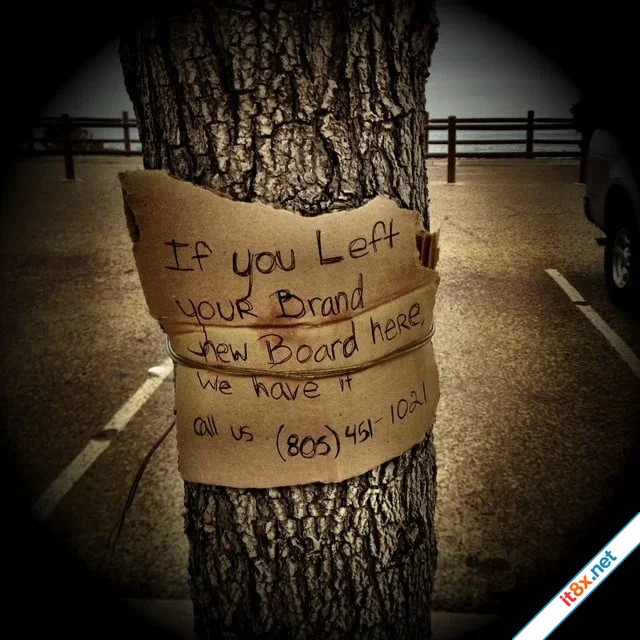 If you Left
your Brand
new Board here,
We have it
call us (805) 451-1021
it8x.net